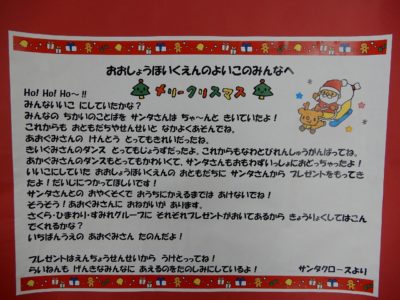 おおしょうほいくえんのよいこのみんなへ
メリークリスマス
Ho! Ho! Ho～!!
みんないいこ にしていたかな?
みんなの ちかいのことばを サンタさんは ちゃ～んと きいていたよ!
これからも おともだちやせんせいと なかよくあそんでね。
あおぐみさんの けんどう とってもきれいだったね。
きいぐみさんのダンス とってもじょうずだったよ。これからもなわとびれんしゅうがんばってね。
あかぐみさんのダンスもとってもかわいくて、サンタさんもおもわずいっしょにおどっちゃったよ!
いいこにしていた おおしょうほいくえんの おともだちに サンタさんから プレゼントをもってき
たよ!だいじにつかってほしいです!
サンタさんとの おやくそくで おうちにかえるまでは あけないでね!
そうそう!あおぐみさんに おねがいが あります。
さくら・ひまわり・すみれグループに それぞれプレゼントがおいてあるから きょうりょくしてはこん
でくれるかな?
いちばんうえの あおぐみさん たのんだよ!
プレゼントはえんちょうせんせいから うけとってね!
らいねんも げんきなみんなに あえるのをたのしみにしているよ!
サンタクロースより